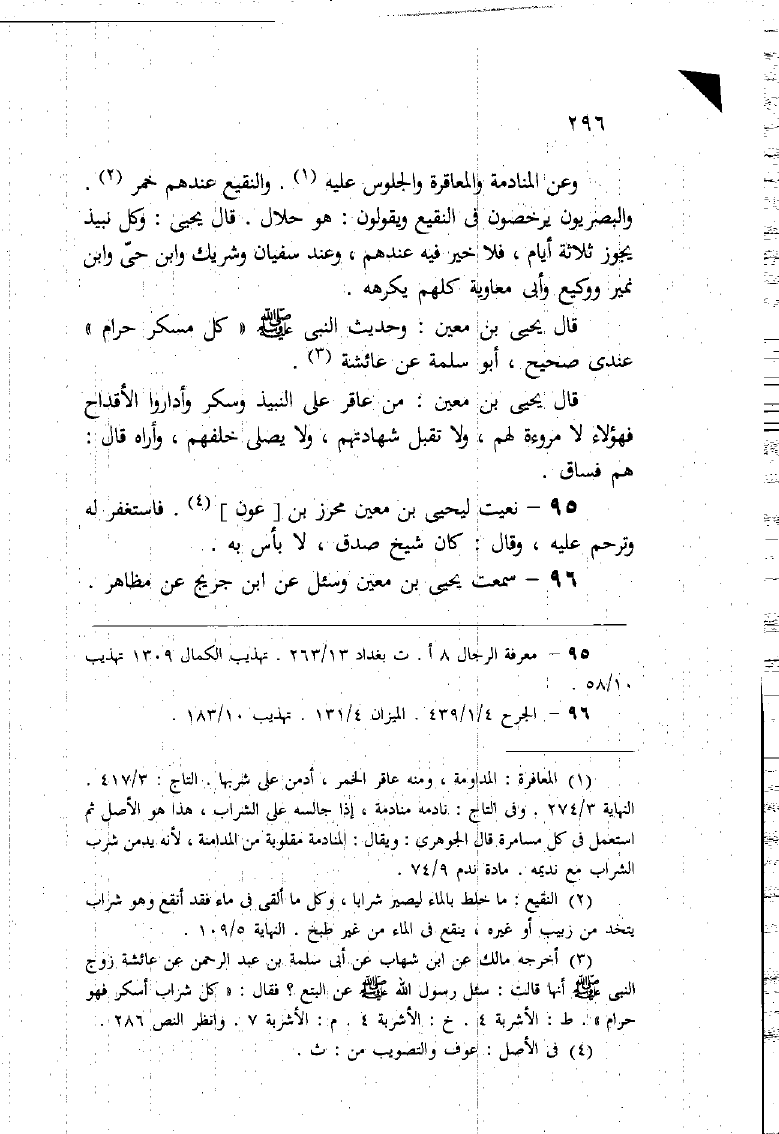 ٢٩٦
وعن المنادمة والمعاقرة والجلوس عليه (١) . والنقيع عندهم خمر (٢) .
والبصريون يرخصون فى النقيع ويقولون : هو حلال . قال يحيى : وكل نبيذ
يجوز ثلاثة أيام ، فلا خير فيه عندهم ، وعند سفيان وشريك وابن حىّ وابن
نمير ووكيع وأبى معاوية كلهم يكرهه .
قال يحيى بن معين : وحديث النبى ﷺ « كل مسكر حرام »
عندى صحيح ، أبو سلمة عن عائشة (٣) .
قال يحيى بن معين : من عاقر على النبيذ وسكر وأداروا الأقداح
فهؤلاء لا مروءة لهم ، ولا تقبل شهادتهم ، ولا يصلى خلفهم ، وأراه قال :
هم فساق .
٩٥ – نعيت ليحيى بن معين محرز بن [ عون ] (٤) . فاستغفر له
وترحم عليه ، وقال : كان شيخ صدق ، لا بأس به .
٩٦ – سمعت يحيى بن معين وسئل عن ابن جريج عن مظاهر .
٩٥ – معرفة الرجال ٨ أ . ت بغداد ٢٦٣/١٣ . تهذيب الكمال ١٣٠٩ تهذيب
٥٨/١٠ .
٩٦ – الجرح ٤٣٩/١/٤ . الميزان ١٣١/٤ . تهذيب ١٨٣/١٠ .
(١) المعافرة : المداومة ، ومنه عاقر الخمر ، أدمن على شربها . التاج : ٤١٧/٣ .
النهاية ٢٧٤/٣ . وفى التاج : نادمه منادمة ، إذا جالسه على الشراب ، هذا هو الأصل ثم
استعمل فى كل مسامرة قال الجوهرى : ويقال : المنادمة مقلوبة من المدامنة ، لأنه يدمن شرب
الشراب مع نديمه . مادة ندم ٧٤/٩ .
(٢) النقيع : ما خلط بالماء ليصير شرابا ، وكل ما ألقى فى ماء فقد أنقع وهو شراب
يتخد من زبيب أو غيره ، ينقع فى الماء من غير طبخ . النهاية ١٠٩/٥ .
(٣) أخرجه مالك عن ابن شهاب عن أبى سلمة بن عبد الرحمن عن عائشة زوج
النبى ﷺ أنها قالت : سئل رسول الله ﷺ عن البتع ؟ فقال : « كل شراب أسكر فهو
حرام » . ط : الأشربة ٤ . خ : الأشربة ٤ . م : الأشربة ٧ . وانظر النص ٢٨٦ .
(٤) فى الأصل : عوف والتصويب من : ث .